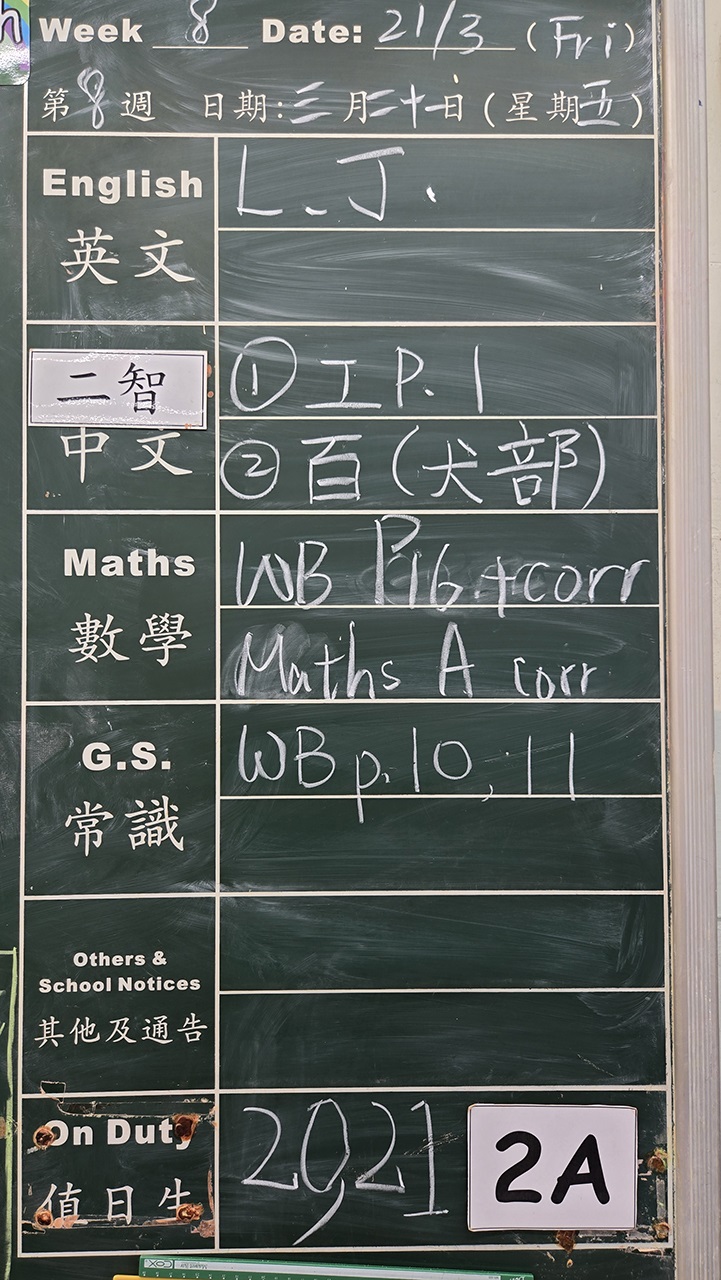 Week 8 Date: 21/3 (Fri)
第8週 日期:三月二十一日(星期五)
English
英文
L.J.
二智
中文
① 工 P.1
② 百(犬部)
Maths
數學
WB P16 + corr
Maths A corr
G.S.
常識
WB p.10, 11
Others &
School Notices
其他及通告
On Duty
值日生
20,21
2A